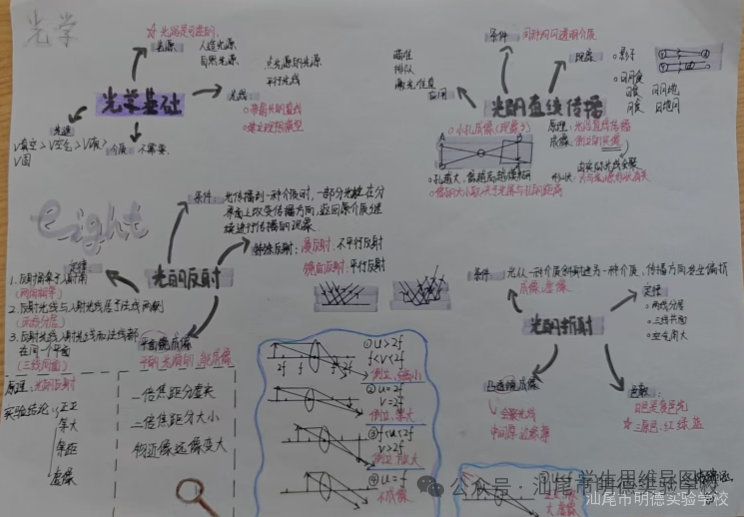 光学
☆光路是可逆的
光源
人造光源
自然光源
点光源的光源
平行光线
光线
○带箭头的直线
○建立理想模型
光学基础
光速
V真空>V空气>V液>V固
介质
不需要
条件
同种均匀透明介质
现象
○影子
○日月食
日食 日月地
月食 日地月
瞄准
排队
激光准直
应用
光的直线传播
○小孔成像(现象3)
原理:光沿直线传播
成像:倒立的实像
A
B
A'
B'
形状:只与光源形状有关
○像的大小取决于光屏与孔的距离
light
条件
光传播到一种介质时,一部分光能在分
界面上改变传播方向,返回原介质继
续进行传播的现象
光的反射
特殊反射:漫反射:不平行反射
镜面反射:平行反射
定律
1.反射角等于入射角
(两角相等)
2.反射光线与入射光线居于法线两侧
3.反射光线入射光线和法线都
在同一个平面
(三线同面)
平面镜成像
原理:光的反射
实验结论:正立
等大
等距
虚像
一倍焦距分虚实
二倍焦距分大小
物近像远像变大
2f f f 2f
①u>2f
f<v<2f
倒立,缩小
②u=2f
v=2f
倒立,等大
③f<u<2f
v>2f
倒立,放大
④u=f
不成像
条件
光从一种介质斜射进另一种介质,传播方向发生偏折
成像:虚像
定律
○两线分居
○三线共面
○空气角大
光的折射
凸透镜成像
会聚光线
中间厚边缘薄
色散:
☆三原色:红绿蓝
公众号·汕尾市明德实验学校
学生思维导图
汕尾市明德实验学校